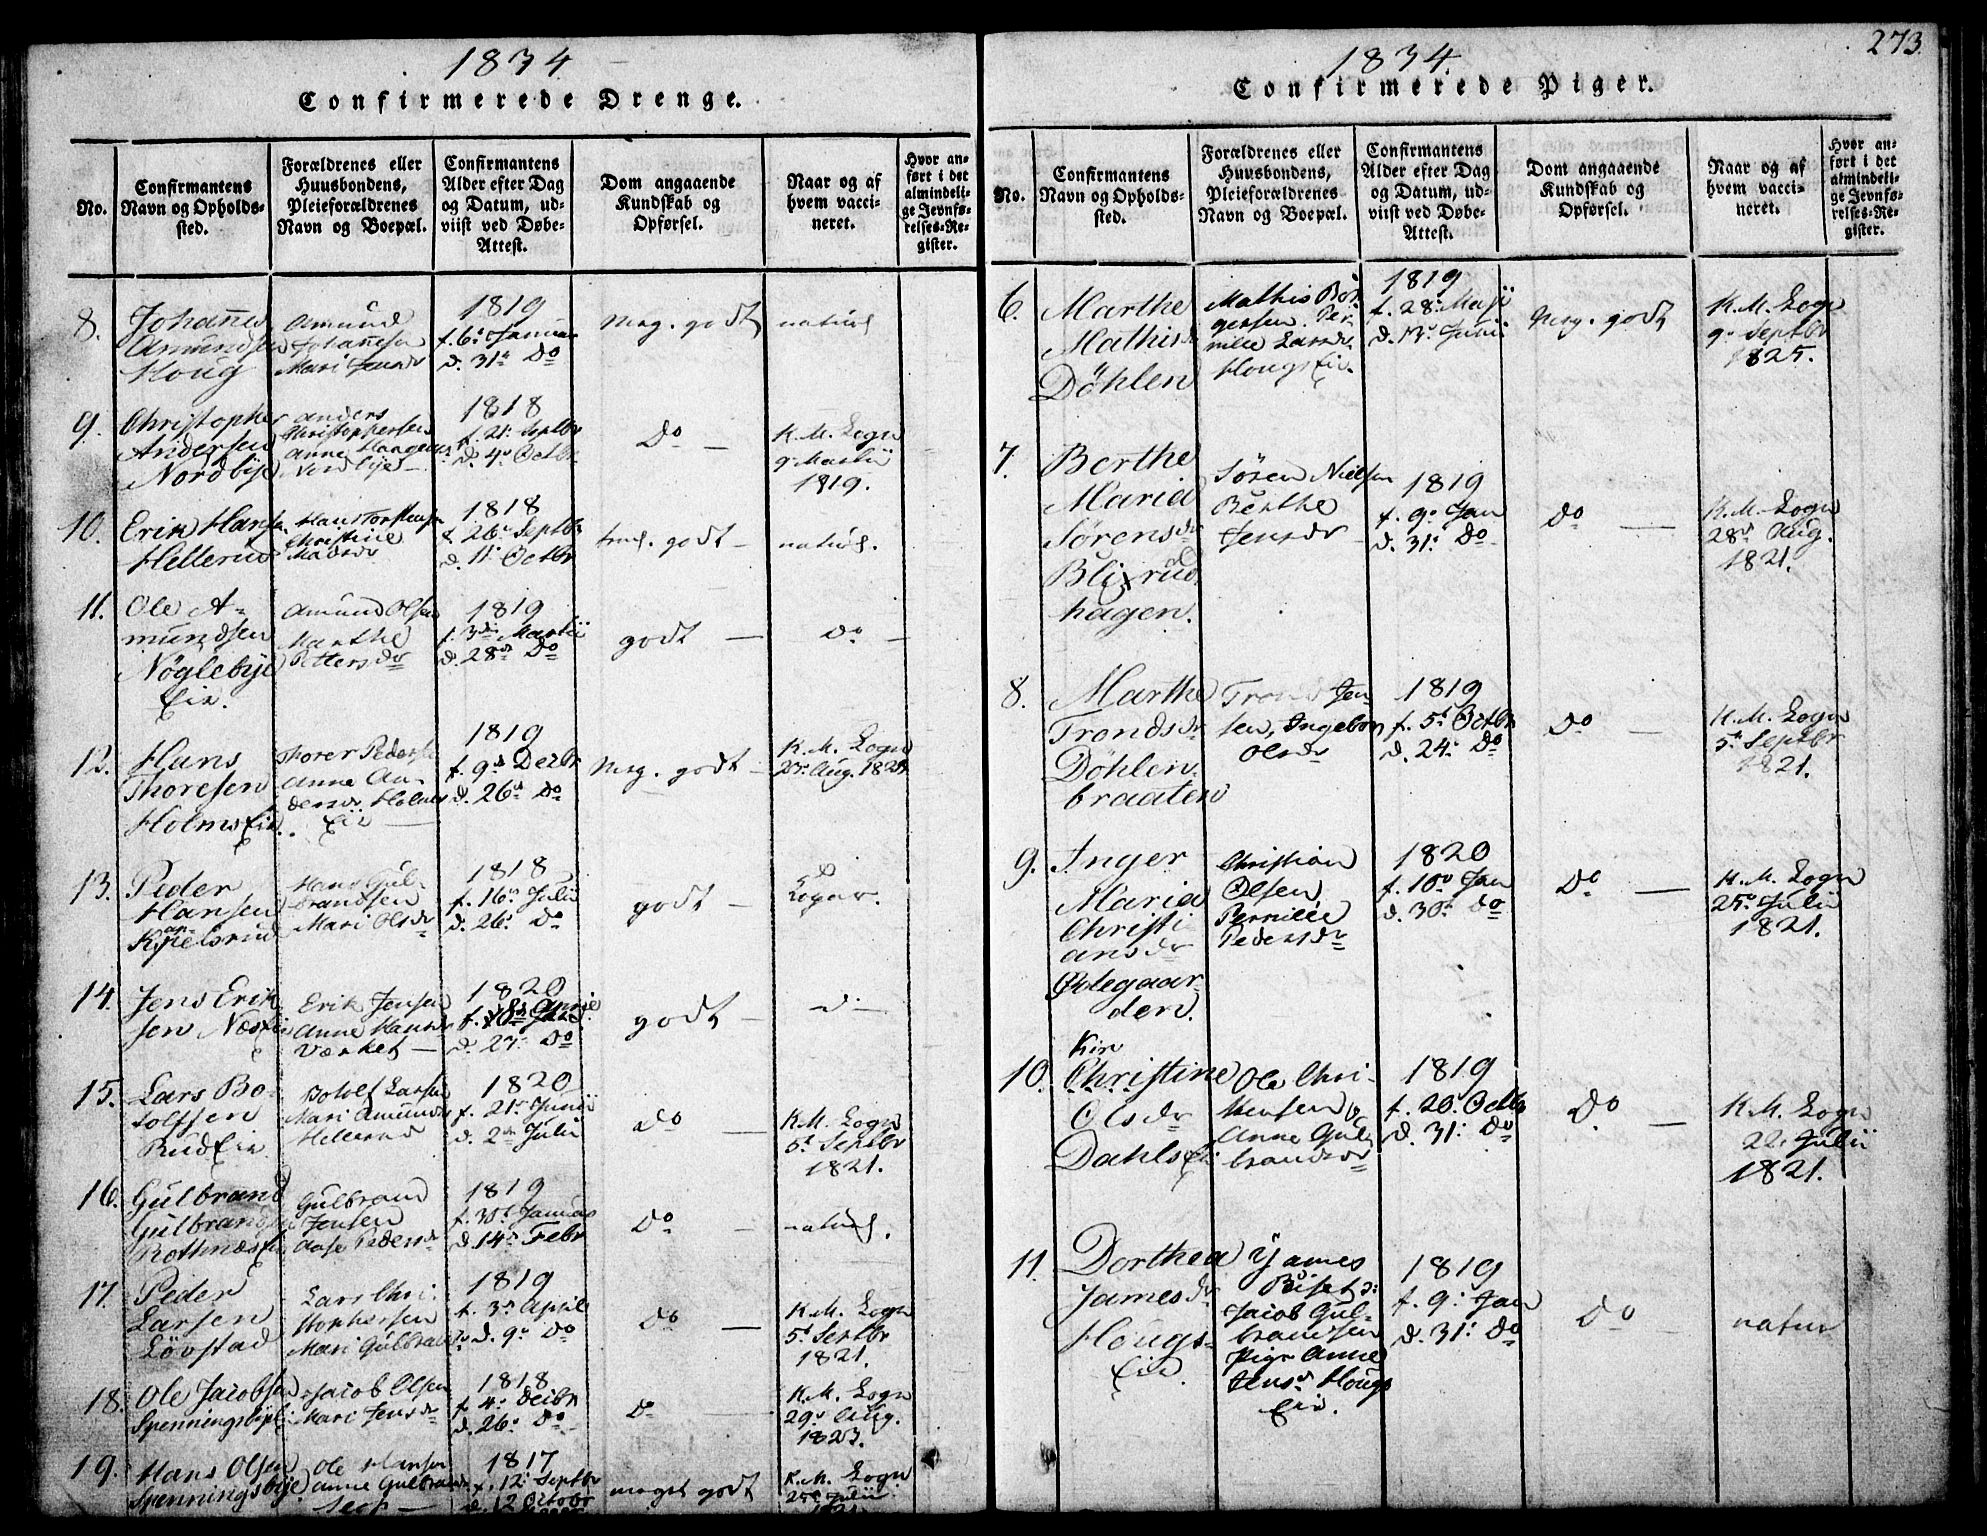 1834
Confirmerede Drenge.
No.
Confirmantens
Navn og Opholds-
sted.
Forældrenes eller
Huusbondens,
Pleieforældrenes
Navn og Boepæl.
Confirmantens
Alder efter Dag
og Datum, ud-
viist ved Døbe-
Attest.
Dom angaaende
Kundskab og
Opførsel.
Naar og af
hvem vacci-
neret.
Hvor an-
ført i det
almindeli-
ge Jevnfø-
relses-Re-
gister.
8.
Johannes
Amundsen
Houg
Amund
Johannesen
Mari Jensdr
1819
f. 6. Januar
d. 31. Do
Meg. godt
natürl
9.
Christopher
Andersen
Nordbye
Anders
Christophersen
Anne
Nordbye
1818
f. 21. Septbr
d. 4. Octbr
Do —
K. M. Logn
9. Martii
1819.
10.
Erik Hansen
Hellerud
Hans Torstensen
Christine
Madsdr
1818
f. 26. Septbr
d. 11. Octbr
godt —
natürl.
11.
Ole A-
mundsen
Nøglebye
Eie.
Amund Olsen
Marthe
Pettersdr
1819
f. 3die Martii
d. 28. Do
godt —
Do —
12.
Hans
Thoresen
HolmsEie.
Thorer Pedersen
Anne An-
dersdr Holms
Eie —
1819
f. 9. Decbr
d. 26. Do
Meg. godt —
K. M. Logn
Aug.
13.
Peder
Hansen
Hans Gul-
brandsen
Mari Olsdr
1818
f. 16. Julii
d. 26. Do
godt —
14.
Jens Erik
sen NæsEie
Erik Jensen
Anne Hansdr
Værket —
1820
d. 27. Do
godt —
15.
Lars Bo-
tolfsen
RudEie.
Botolf Larsen
Mari Amundsdr
Hellerud
1820
f. 21. Junii
d. 2. Julii
Do —
K. M. Logn
5. Septbr
1821.
16.
Gulbrand
Gulbrandsen
RotnæsEie
Gulbrand
Jensen
Aase Pedersdr
1819
f. 30. Januar
d. 14. Febr
Do —
natürl.
17.
Peder
Larsen
Løvstad
Lars Chri-
stophersen
Mari Gulbrandsdr
1819
f. 3. April
d. 9. Do
Do —
K. M. Logn
5. Septbr
1821.
18.
Ole Jacobsen
Spenningsbye
Jacob Olsen
Mari Jensdr
1818
f. 4. Decbr
d. 26. Do
Do
K. M. Logn
29. Aug.
1823.
19.
Hans Olsen
Spenningsbye
Ole Hansen
Anne Gulbrandsdr
1817
f. 12. Septbr
d. 12 October
meget godt
K. M. Logn
Julii
273
1834.
Confirmerede Piger.
No.
Confirmantens
Navn og Opholds-
sted.
Forældrenes eller
Huusbondens,
Pleieforældrenes
Navn og Boepæl.
Confirmantens
Alder efter Dag
og Datum, ud-
viist ved Døbe-
Attest.
Dom angaaende
Kundskab og
Opførsel.
Naar og af
hvem vacci-
neret.
Hvor an-
ført i det
almindeli-
ge Jevnfø-
relses-Re-
gister.
6.
Marthe
Mathisdr
Döhlen
Mathis Bör-
gersen. Per-
nille Larsdr.
HougsEie.
1819
f. 28. Maji
d. 13. Junii
Meg. godt
K. M. Logn
9. Septbr
1825.
7.
Berthe
Maria
Sørensdr
Blixrud
hagen.
Sören Nielsen
Berthe
Jensdr
1819
f. 9. Jan
d. 31. Do
Do —
K. M. Logn
28. Aug.
1821.
8.
Marthe
Trondsdr
Döhlen-
braaten
Trond Jen-
sen, Ingebor
Olsdr
1819
f. 5. Octbr
d. 24. Do
Do —
K. M. Logn
5. Septbr
1821.
9.
Inger
Maria
Christi
ansdr
Ødegaar-
den.
Christian
Olsen
Pernille
Pedersdr
1820
f. 10. Jan
d. 30. Do
Do —
K. M. Logn
25. Julii
1821.
10.
Kirs
Christine
Olsdr
DahlsEie
Ole Chri-
stensen og
Anne Gul-
brandsdr
1819
f. 20. Octbr
d. 31. Do
Do —
K. M. Logn
22. Julii
1821.
11.
Dorthea
Jamesdr
Hougs-
Eie.
Yames
Biset
Jacob Gul-
brandsen
Pige Anne
Jensd Hougs
Eie.
1819
f. 9. Jan
d. 31. Do
Do —
natur